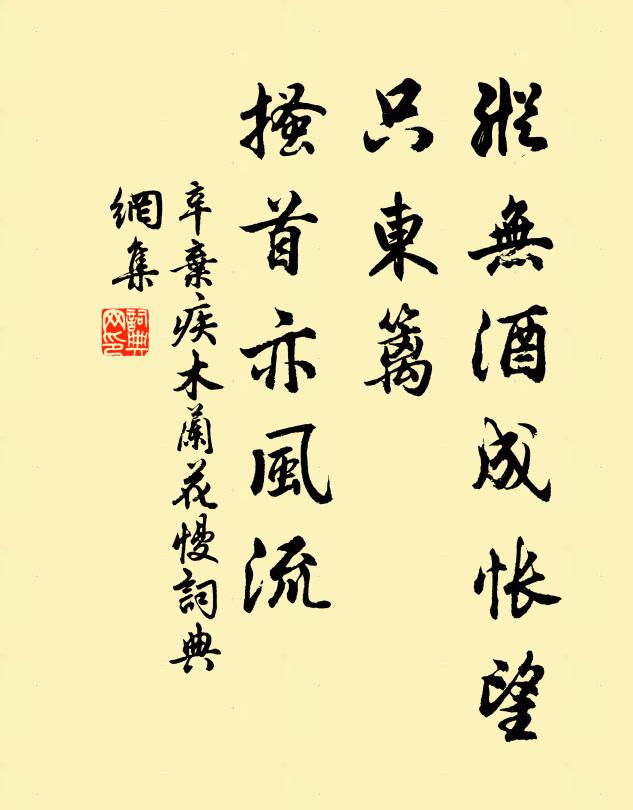 縱無酒成悵望
只東籬
搔首亦風流
辛棄疾木蘭花慢詞典
網集
詞典
网印